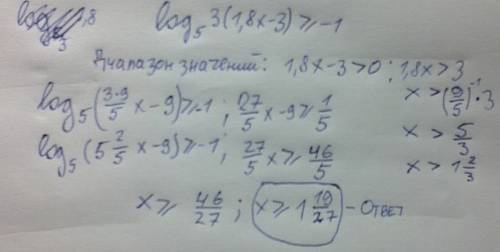 3 ,8 log₅ 3(1,8x-3) ≥ -1
Диапазон значений: 1,8x-3>0; 1,8x>3
log₅(3·9/5 x-9) ≥ -1; 27/5 x-9 ≥ 1/5
x > (9/5)⁻¹·3
log₅(5 2/5 x-9) ≥ -1; 27/5 x ≥ 46/5
x > 5/3
x > 1 2/3
x ≥ 46/27; x ≥ 1 19/27 - Ответ